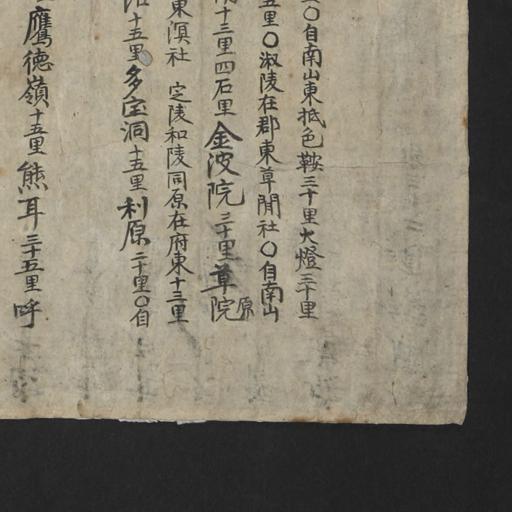 〇自南山東抵色鞍三十里大燈三十里
五里〇淑陵在郡東草閒社〇自南山
十三里四石里金波院三十里草院原
東溟社 定陵和陵同原在府東十三里
十五里多宝洞十五里利原二十里〇自
鷹德嶺十五里熊耳三十五里呼